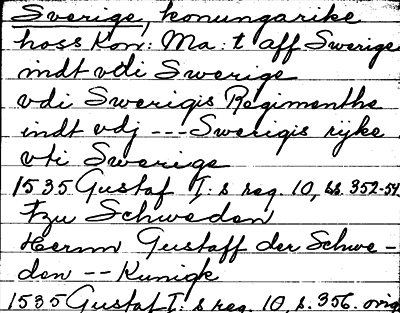 Sverige, konungarike
hoss Kon: Ma: t aff Swerige
indt vdi Swerige
vdi Swerigis Regimenthe
indt vdj --- Swerigis rijke
vti Swerige
1535 Gustaf I:s reg. 10, ss. 352-54
tzu Schweden
Herrn Gustaff der Schwe-
den -- Kunigk
1535 Gustaf I:s reg. 10, s. 356. orig